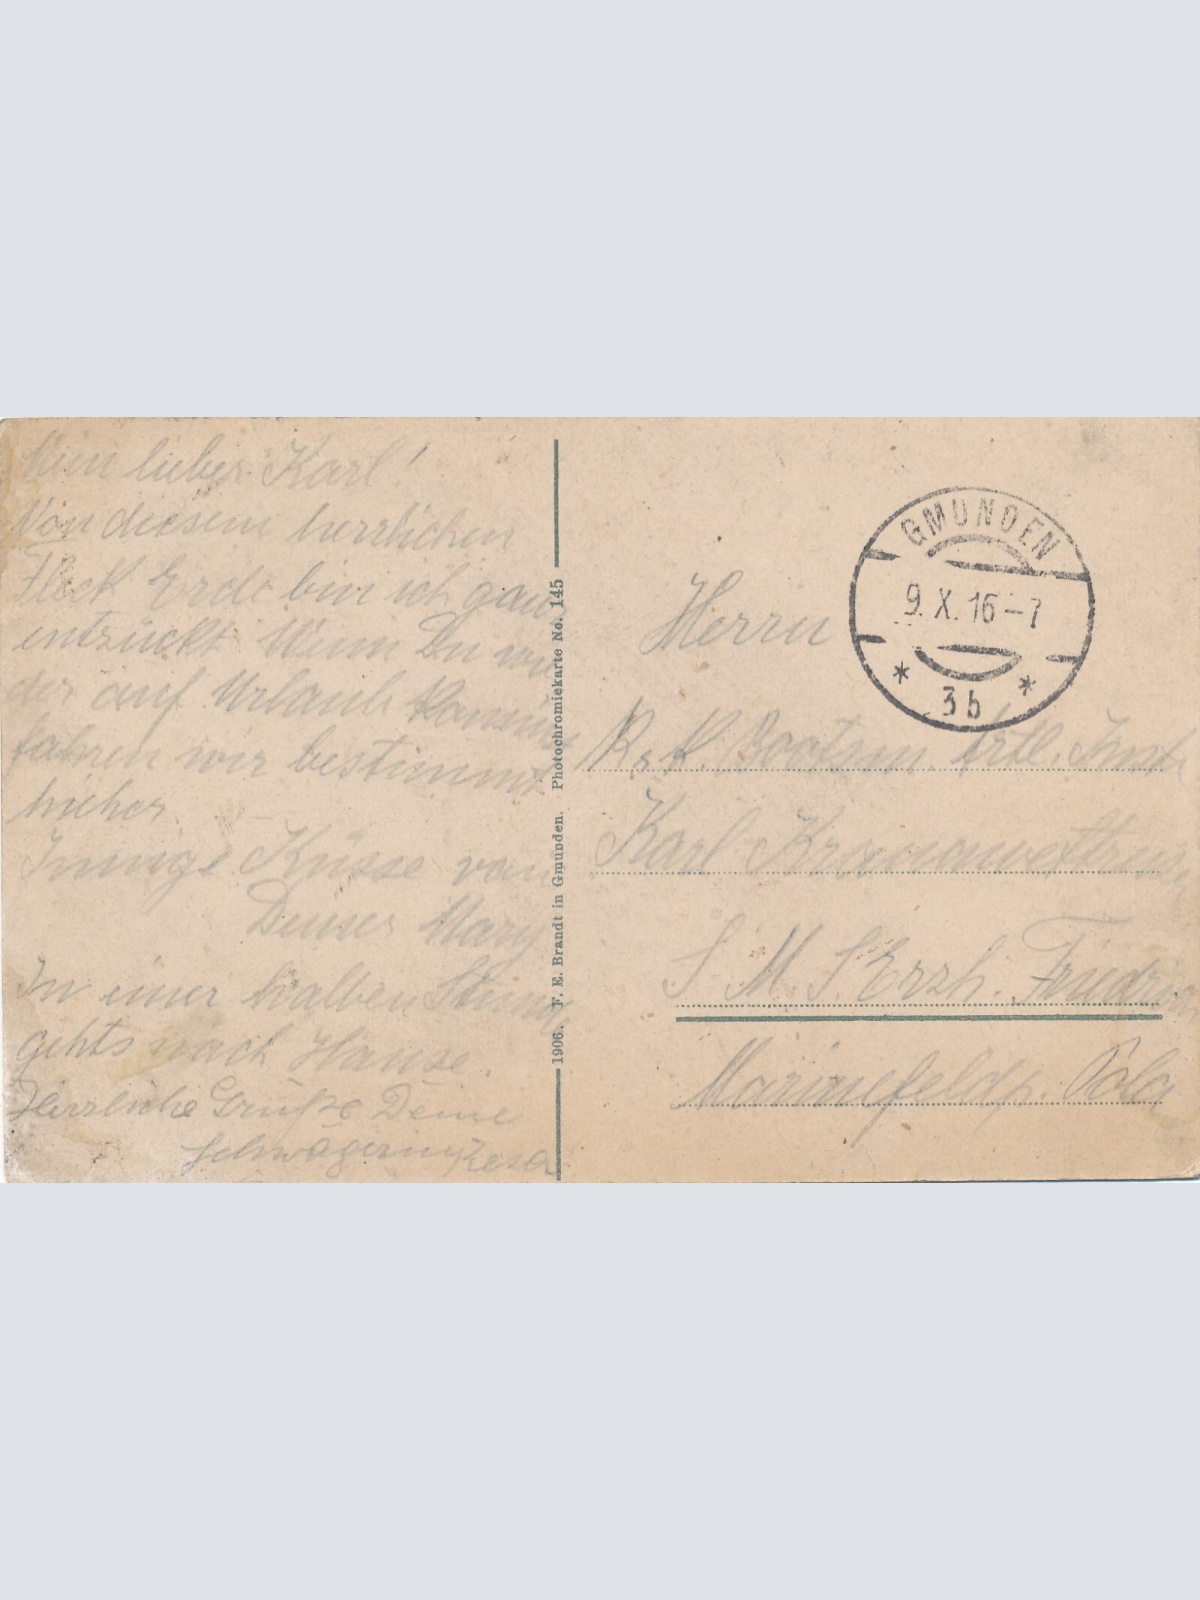 Mein lieber Karl!
Von diesem herrlichen
Fleck Erde bin ich ganz
entzückt. Wenn Du wie
der auf Urlaub kommst
fahren wir bestimmt
hieher.
Innige Küsse von
Deiner Mary
In einer halben Stunde
gehts nach Hause.
Herzliche Grüße Deine
Schwägerin Resa
1906. F. E. Brandt in Gmunden. Photochromiekarte No. 145
GMUNDEN
9. X. 16 - 7
* 3b *
Herrn
K. Bootsm. Artl. Inst
Karl
S. M. S. Erzh. Friedrich
Marinefeldp. Pola